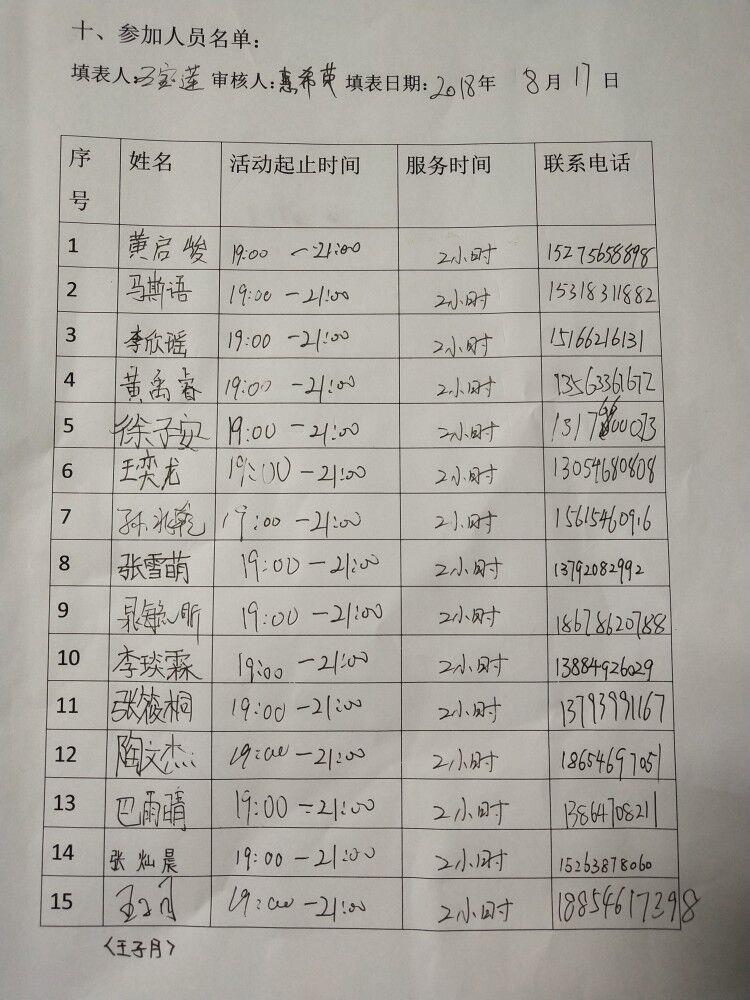 十、参加人员名单：
填表人：王宝莲 审核人：惠希荣 填表日期：2018年 8月17日
序号 姓名 活动起止时间 服务时间 联系电话
1 黄启峻 19:00 —21:00 2小时 15275658898
2 马斯语 19:00 —21:00 2小时 15318311882
3 李欣瑶 19:00 —21:00 2小时 15166216131
4 黄禹睿 19:00 —21:00 2小时 13563361672
5 徐子安 19:00 —21:00 2小时
6 王奕龙 19:00 —21:00 2小时 13054680808
7 孙兆乾 19:00 —21:00 2小时 15615460916
8 张雪萌 19:00 —21:00 2小时 13792082992
9 19:00 —21:00 2小时 18678620788
10 李琰霖 19:00 —21:00 2小时 13884926029
11 张筱桐 19:00 —21:00 2小时 13793991167
12 陶文杰 19:00 —21:00 2小时 18654697051
13 巴雨晴 19:00 —21:00 2小时 13864708211
14 张灿晨 19:00 —21:00 2小时 15263878060
15 王子月 19:00 —21:00 2小时 18854617398
〈王子月〉